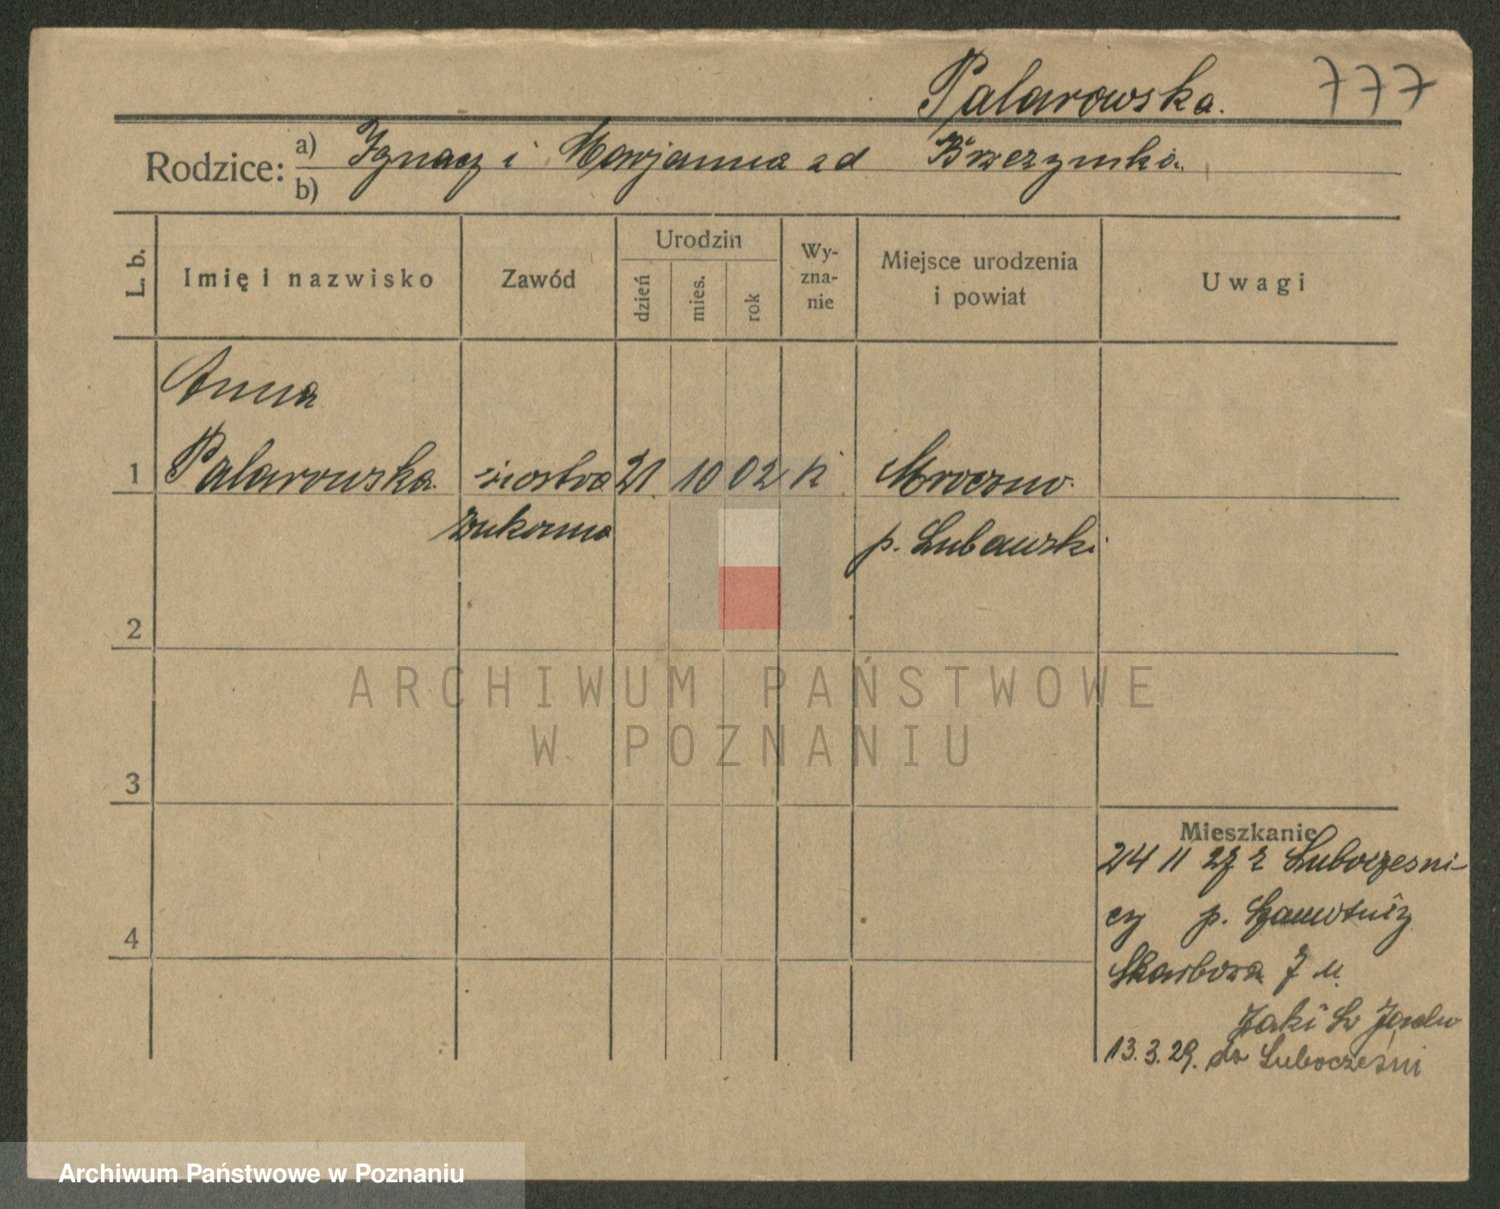 Palarowska. 777
Rodzice: a) Ignacy i Marjanna zd Brzezynska.
b)
L. b. Imię i nazwisko Zawód Urodzin dzień mies. rok Wy-zna-nie Miejsce urodzenia i powiat Uwagi
Anna
1 Palarowska siostra 21. 10 02 k Mroczno.
zakonna p. Lubawski
2
ARCHIWUM PAŃSTWOWE
W POZNANIU
3
Mieszkanie
24 11 27 z Luboczesni-
cy p. Szamotuły
4
Skarbowa 7 u
13.3.29. do Lubocześni
Archiwum Państwowe w Poznaniu